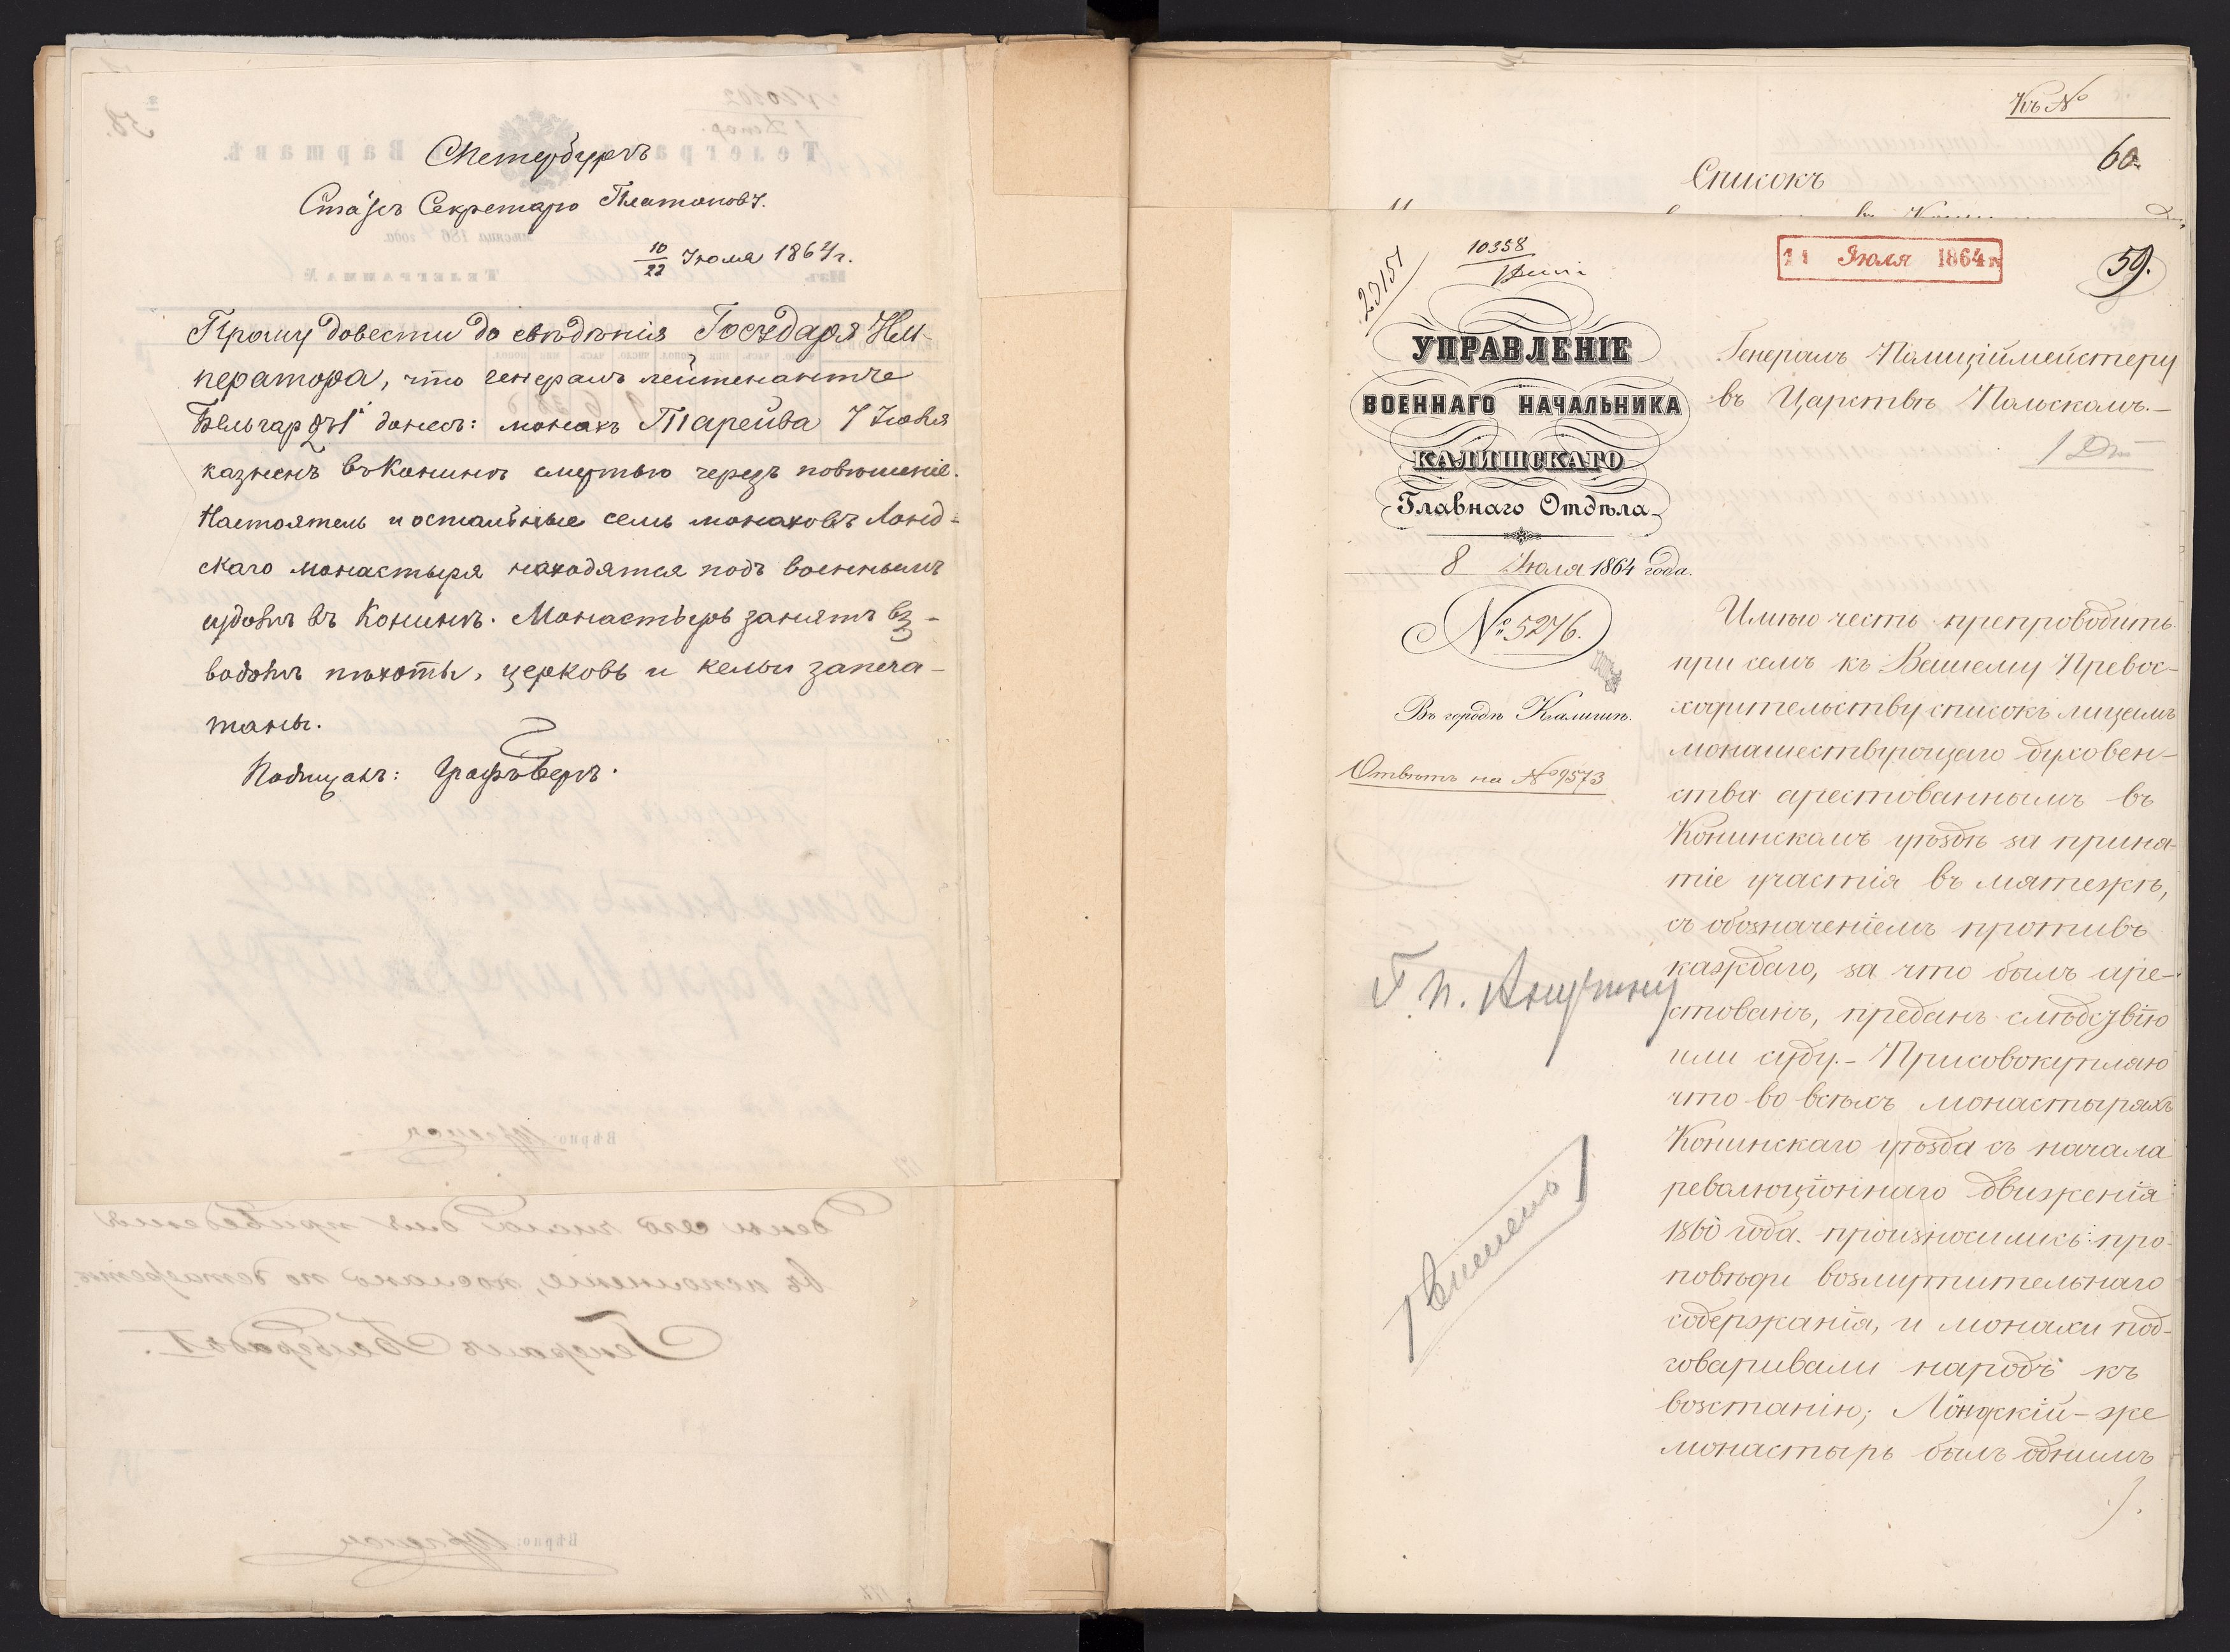 СПетербургъ
Статсъ Секретарю Платонову.
10/22 Іюля 1864 г.
Прошу довести до свѣдѣнія Государя Им-
ператора, что генералъ лейтенантъ
Бельгардъ 1й донесъ: монахъ Тарейва 7 Іюля
казненъ въ Конинѣ смертью черезъ повѣшеніе.
Настоятель и остальные семь монаховъ Лонд-
скаго монастыря находятся подъ военнымъ
судомъ въ Конинѣ. Монастырь занятъ вз-
водомъ пѣхоты, церковь и кельи запеча-
таны.
Подписалъ: Графъ Бергъ.
Къ №
60.
Списокъ
23151
10358
11 Іюля 1864 г.
59.
УПРАВЛЕНІЕ
ВОЕННАГО НАЧАЛЬНИКА
КАЛИШСКАГО
Главнаго Отдѣла
8 Іюля 1864 года.
№ 5276.
Въ городѣ Калишѣ.
Отвѣтъ на № 9573
Генералъ Полиціймейстеру
въ Царствѣ Польскомъ.—
Имѣю честь препроводить
при семъ къ Вашему Превос-
ходительству списокъ лицамъ
монашествующаго духовен-
ства арестованнымъ въ
Конинскомъ уѣздѣ за приня-
тіе участія въ мятежѣ,
съ обозначеніемъ противъ
каждаго, за что былъ аре-
стованъ, преданъ слѣдствію
или суду.— Присовокупляю
что во всѣхъ монастыряхъ
Конинскаго уѣзда съ начала
революціоннаго движенія
1860 года. произносились про-
повѣди возмутительнаго
содержанія, и монахи под-
говаривали народъ къ
возстанію; Лондскій-же
монастырь былъ однимъ